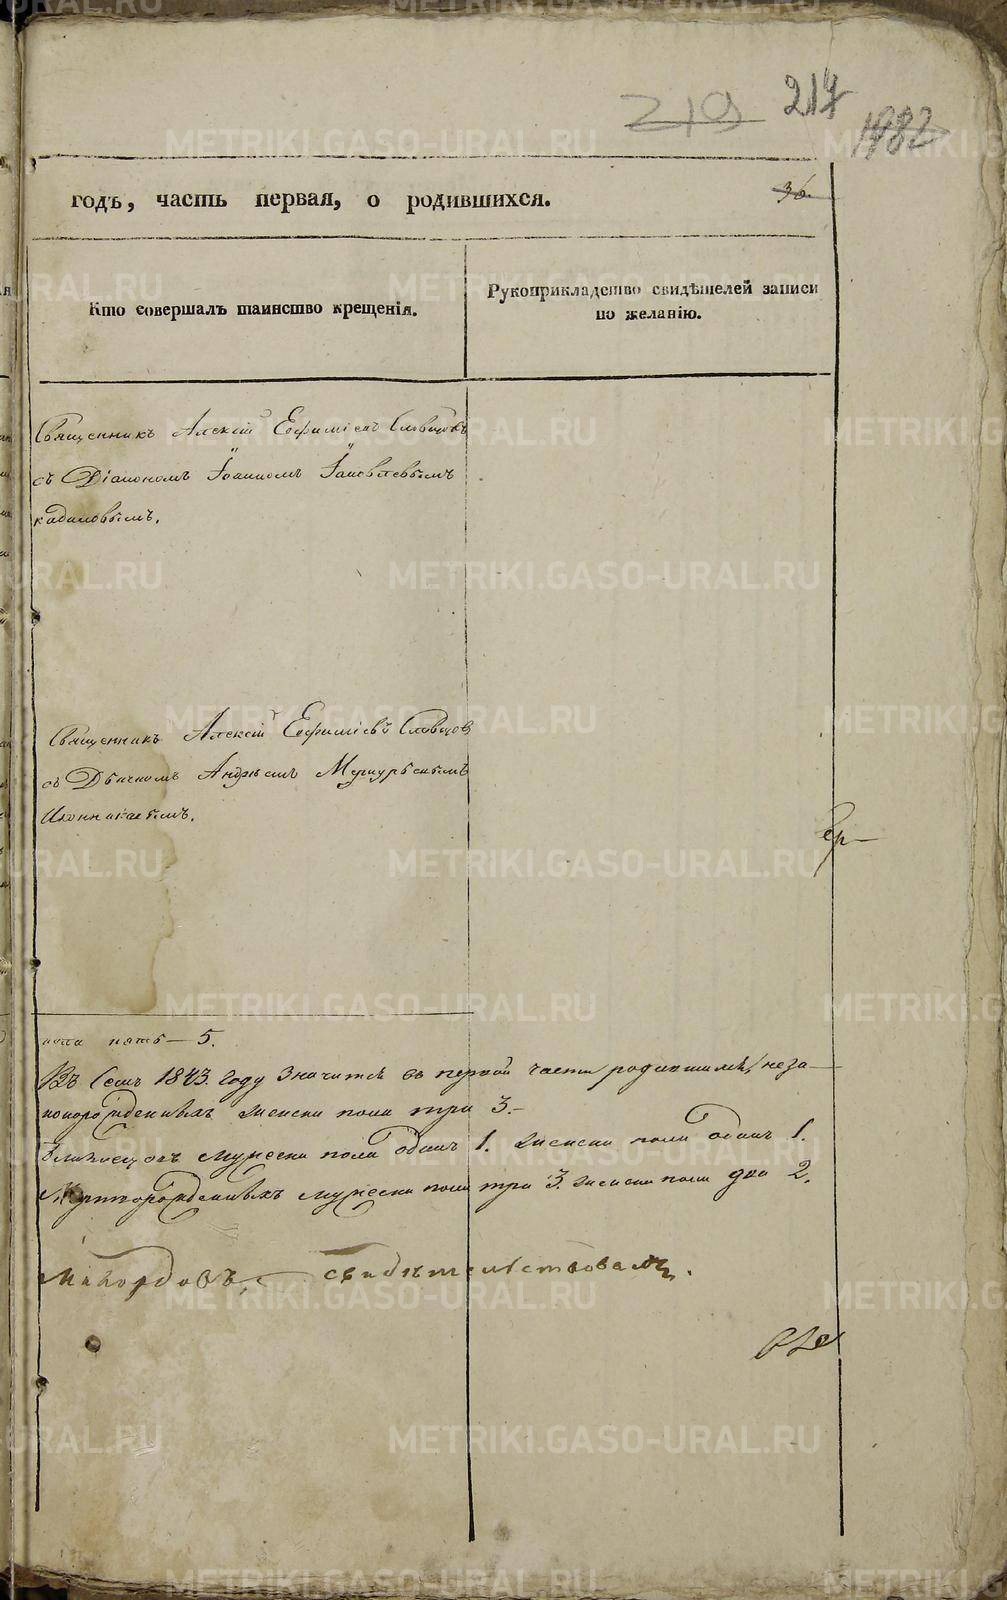 219 217
1882
годъ, часть первая, о родившихся. 36
Кто совершалъ таинство крещенія.
Рукоприкладство свидѣтелей записи
по желанію.
Священникъ Алексій Евфиміевъ Словцовъ
съ Діакономъ Іоанномъ Іаковлевымъ
Кадиловымъ.
Священникъ Алексій Евфиміевъ Словцов
съ Дьячкомъ Андреемъ Меркурьевымъ
Иконниковымъ.
пола пять — 5.
Въ семъ 1843. году значится въ первой части родившимися неза-
конорожденныхъ женска пола три 3.-
Близнецовъ мужеска пола одинъ 1. женска пола одинъ 1.
Мертворожденныхъ мужеска пола три 3. женска пола два 2.
свидѣтельствовалъ.
METRIKI.GASO-URAL.RU